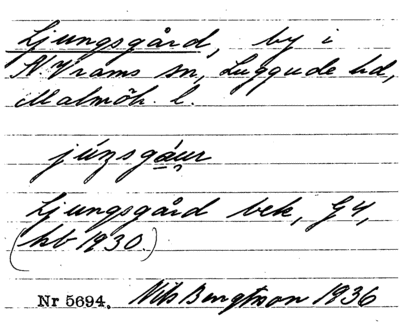 Ljungsgård, by i
N. Vrams sn, Luggude hd,
Malmöh. l.
júŋsgåur
Ljungsgård bek, G4,
(hb 1930.)
Nr 5694. Nils Bengtsson 1936